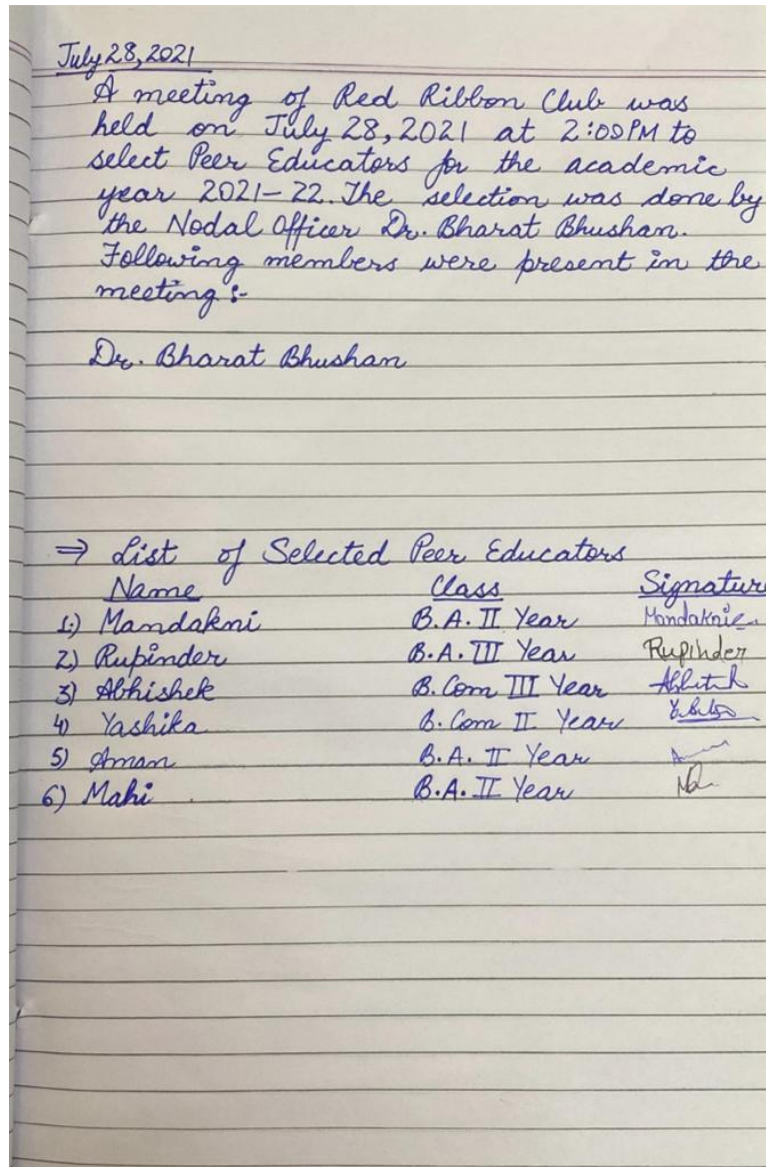 July 28, 2021
A meeting of Red Ribbon Club was
held on July 28, 2021 at 2:00PM to
select Peer Educators for the academic
year 2021-22. The selection was done by
the Nodal Officer Dr. Bharat Bhushan.
Following members were present in the
meeting :-
Dr. Bharat Bhushan
⇒ List of Selected Peer Educators
Name Class Signature
1.) Mandakni B.A. II Year Mandaknie
2) Rupinder B.A. III Year Rupinder
3) Abhishek B.Com III Year
4) Yashika B.Com II Year
5) Aman B.A. II Year
6) Mahi B.A. II Year